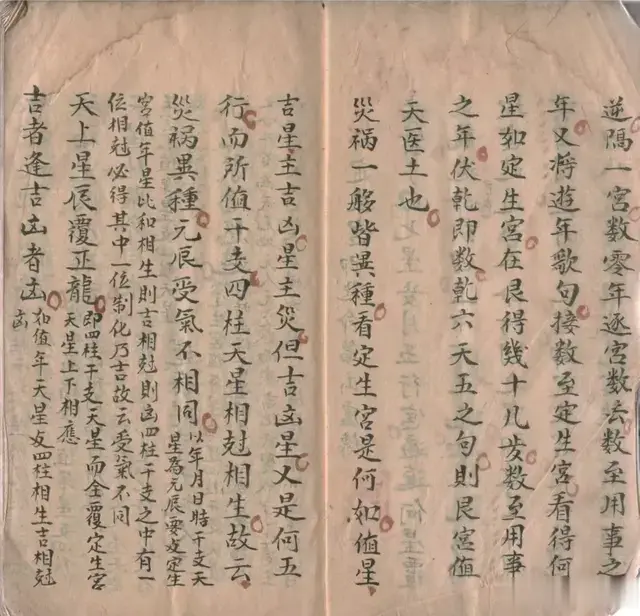 逆隔一宮數零年逐宮數去數至用事之
年又將遊年歌句接數至定生宮看得何
星如定生宮在艮得幾十几岁數至用事
之年伏乾即數乾六天五之句則艮宮值
天医土也
災禍一般皆異種看定生宮是何如值星
吉星主吉凶星主災但吉凶星又是何五
行而所值干支四柱天星相尅相生故云
災禍異種元辰受氣不相同以年月日時干支天
星為元辰要定生
宮值年星比和相生則吉相尅則凶四柱干支之中有一
位相尅必得其中一位制化乃吉故云受氣不同
天上星辰覆正龍即四柱干支天星而全覆定生宮
天星上下相應
吉者逢吉凶者凶如值年天星四柱相生吉相尅
凶